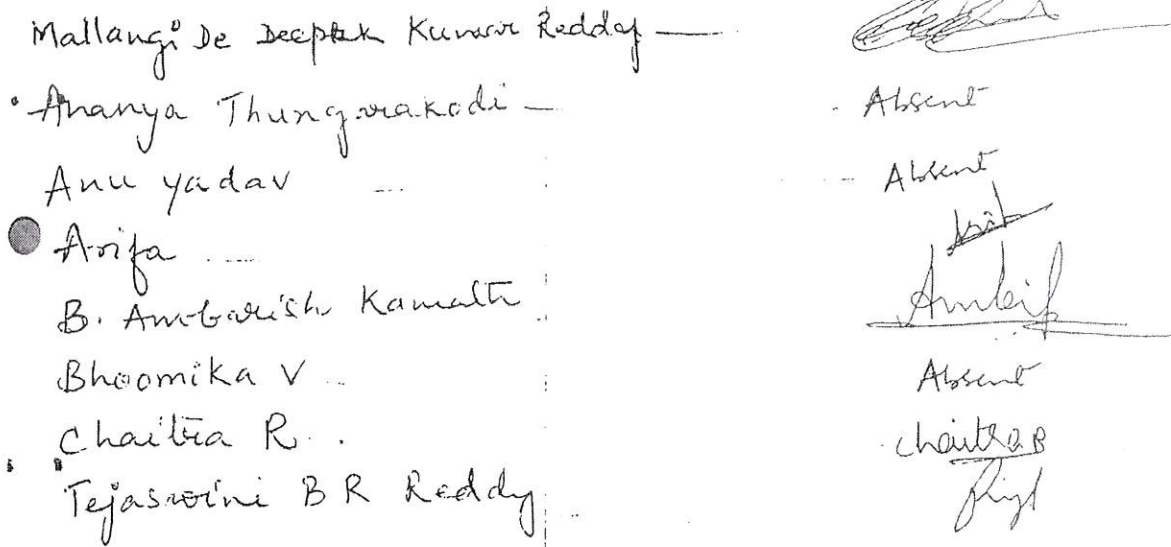 Mallangi De Deepak Kumar Reddy —
Ananya Thungarakodi — Absent
Anu Yadav Absent
Arifa
B. Ambarish Kamath
Bhoomika V Absent
Chaitra R. Chaitra R
Tejaswini B R Reddy